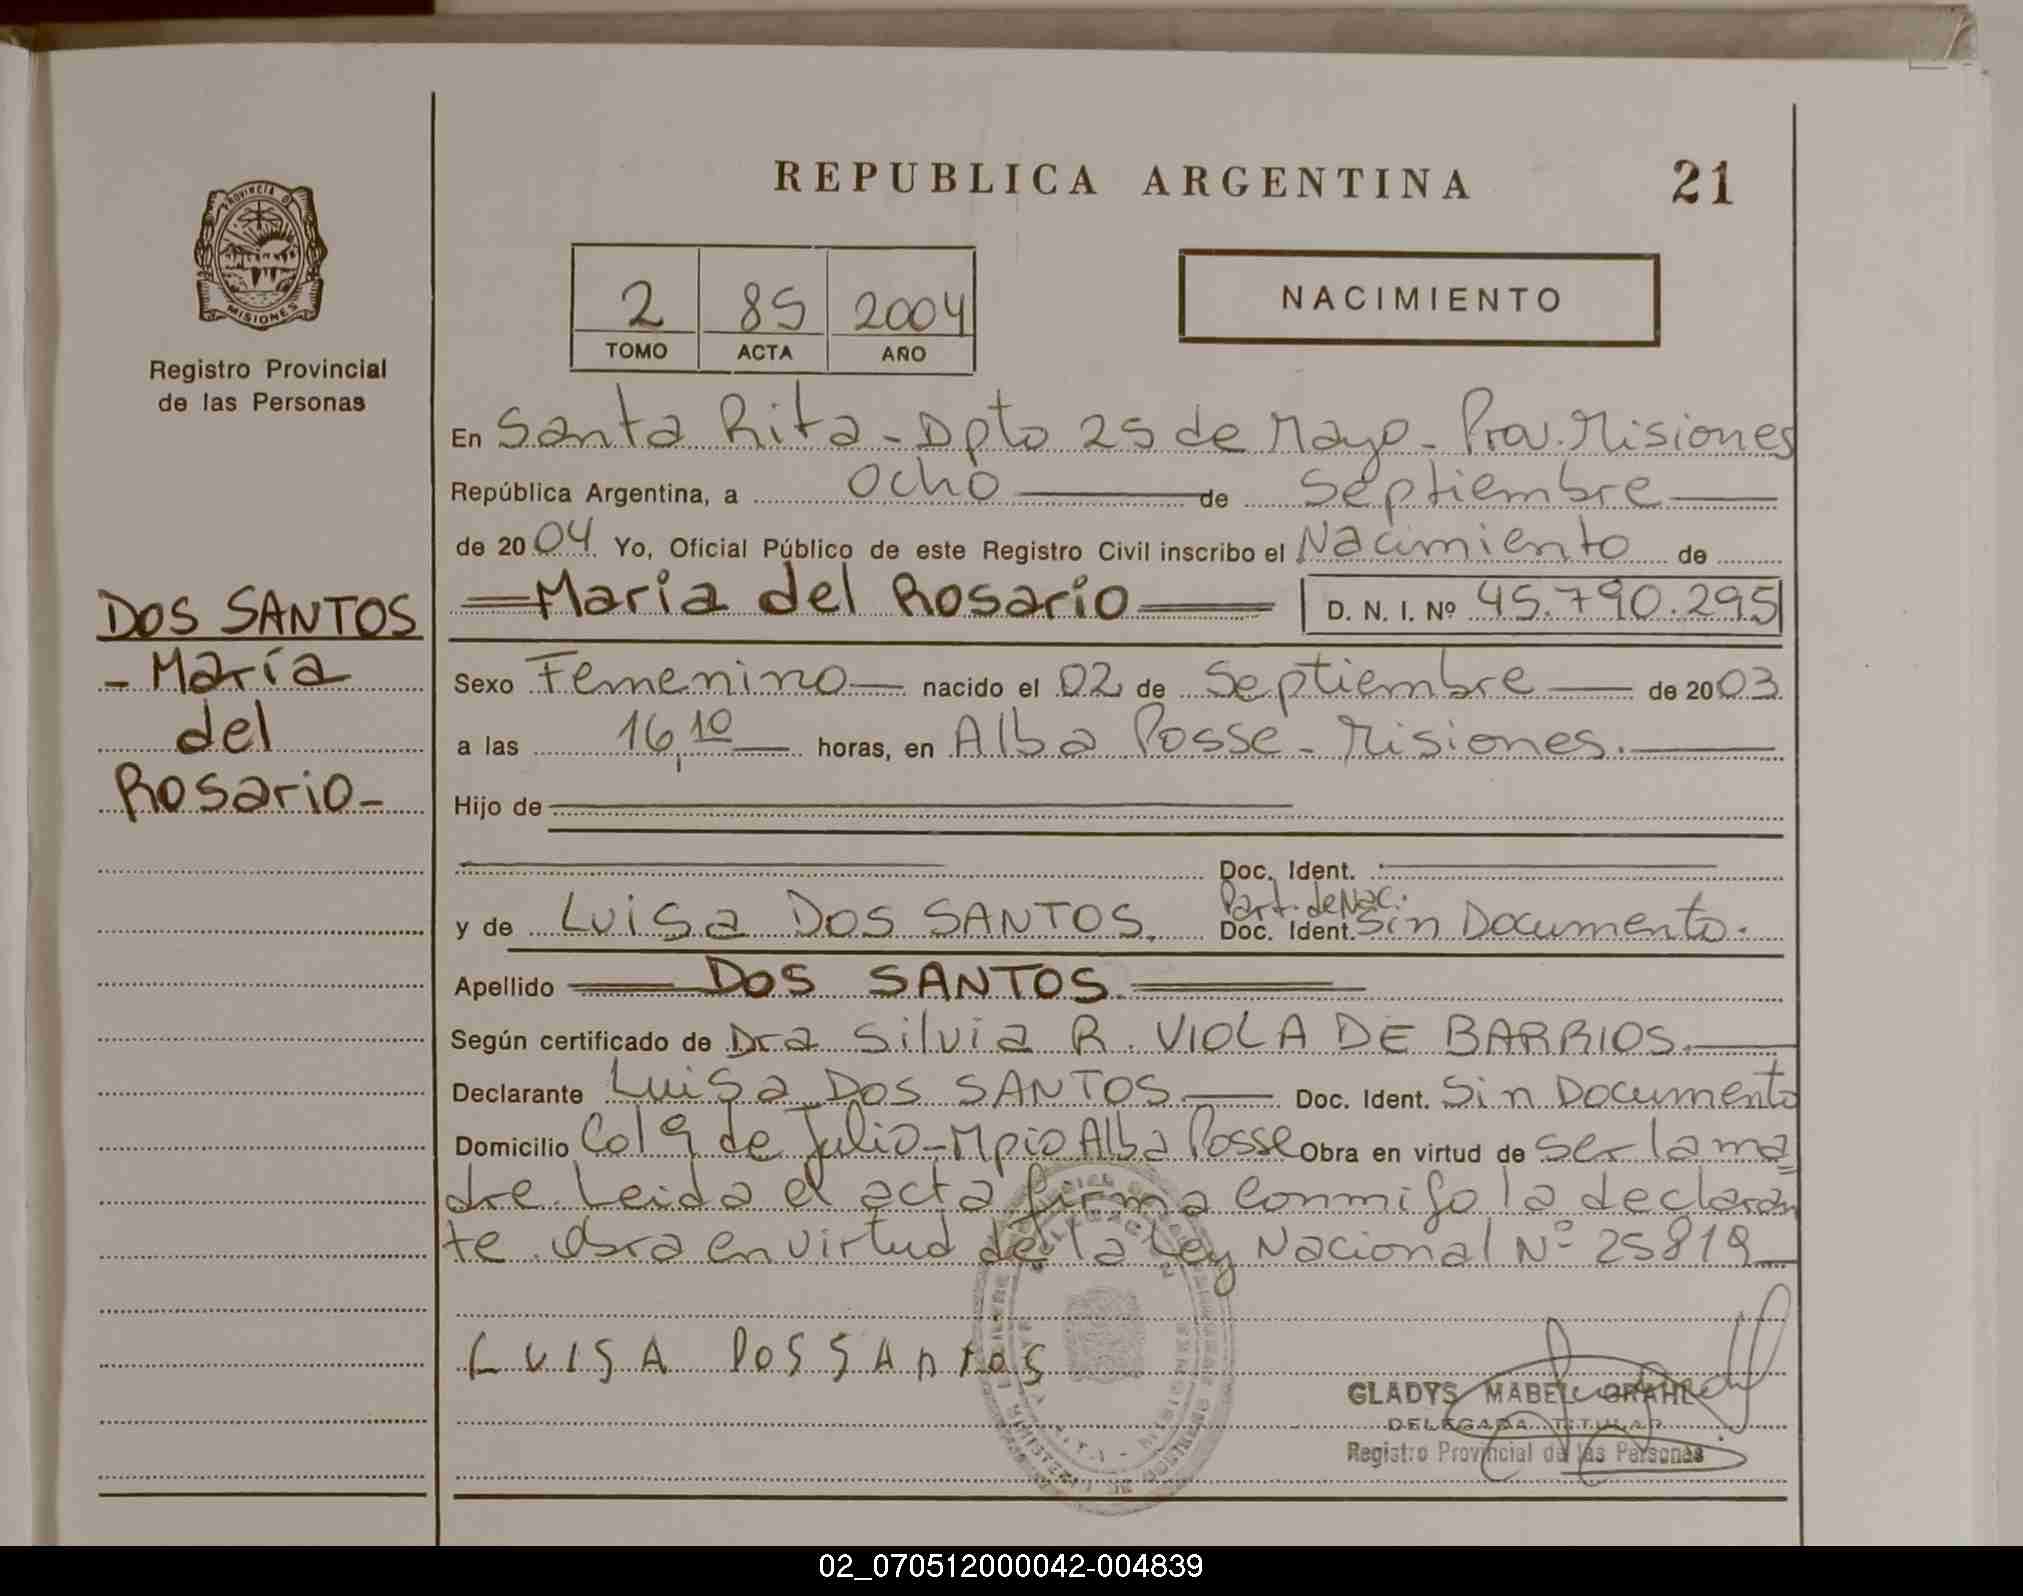 REPUBLICA ARGENTINA 21
PROVINCIA DE
MISIONES
Registro Provincial
de las Personas
2 85 2004
TOMO ACTA AÑO
NACIMIENTO
En Santa Rita - Dpto 25 de Mayo - Prov. Misiones
República Argentina, a ocho de Septiembre
de 2004. Yo, Oficial Público de este Registro Civil inscribo el Nacimiento de
Maria del Rosario D. N. I. Nº 45.790.295
DOS SANTOS
- María
del
Rosario -
Sexo Femenino nacido el 02 de Septiembre de 2003
a las 16,10 horas, en Alba Posse - Misiones.
Hijo de
Doc. Ident.
Part. de Nac.
y de Luisa DOS SANTOS. Doc. Ident. Sin Documento.
Apellido DOS SANTOS.
Según certificado de Dra Silvia R. VIOLA DE BARRIOS.
Declarante Luisa DOS SANTOS Doc. Ident. Sin Documento
Domicilio Col 9 de Julio - Mpio Alba Posse Obra en virtud de ser la ma
dre. Leida el acta firma conmigo la declaran
te. Obra en virtud de la Ley Nacional Nº 25819
LUISA DOS SAntos
GLADYS MABEL GRAHL
DELEGADA TITULAR
Registro Provincial de las Personas
02_070512000042-004839